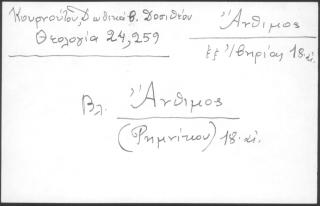 Κουρνούτου, Δωδεκάβ. Δοσιθέου
Θεολογία 24,259
Ἄνθιμος
ἐξ Ἰβηρίας 18. αἰ.
Βλ. Ἄνθιμος
(Ρημνίκου) 18. αἰ.